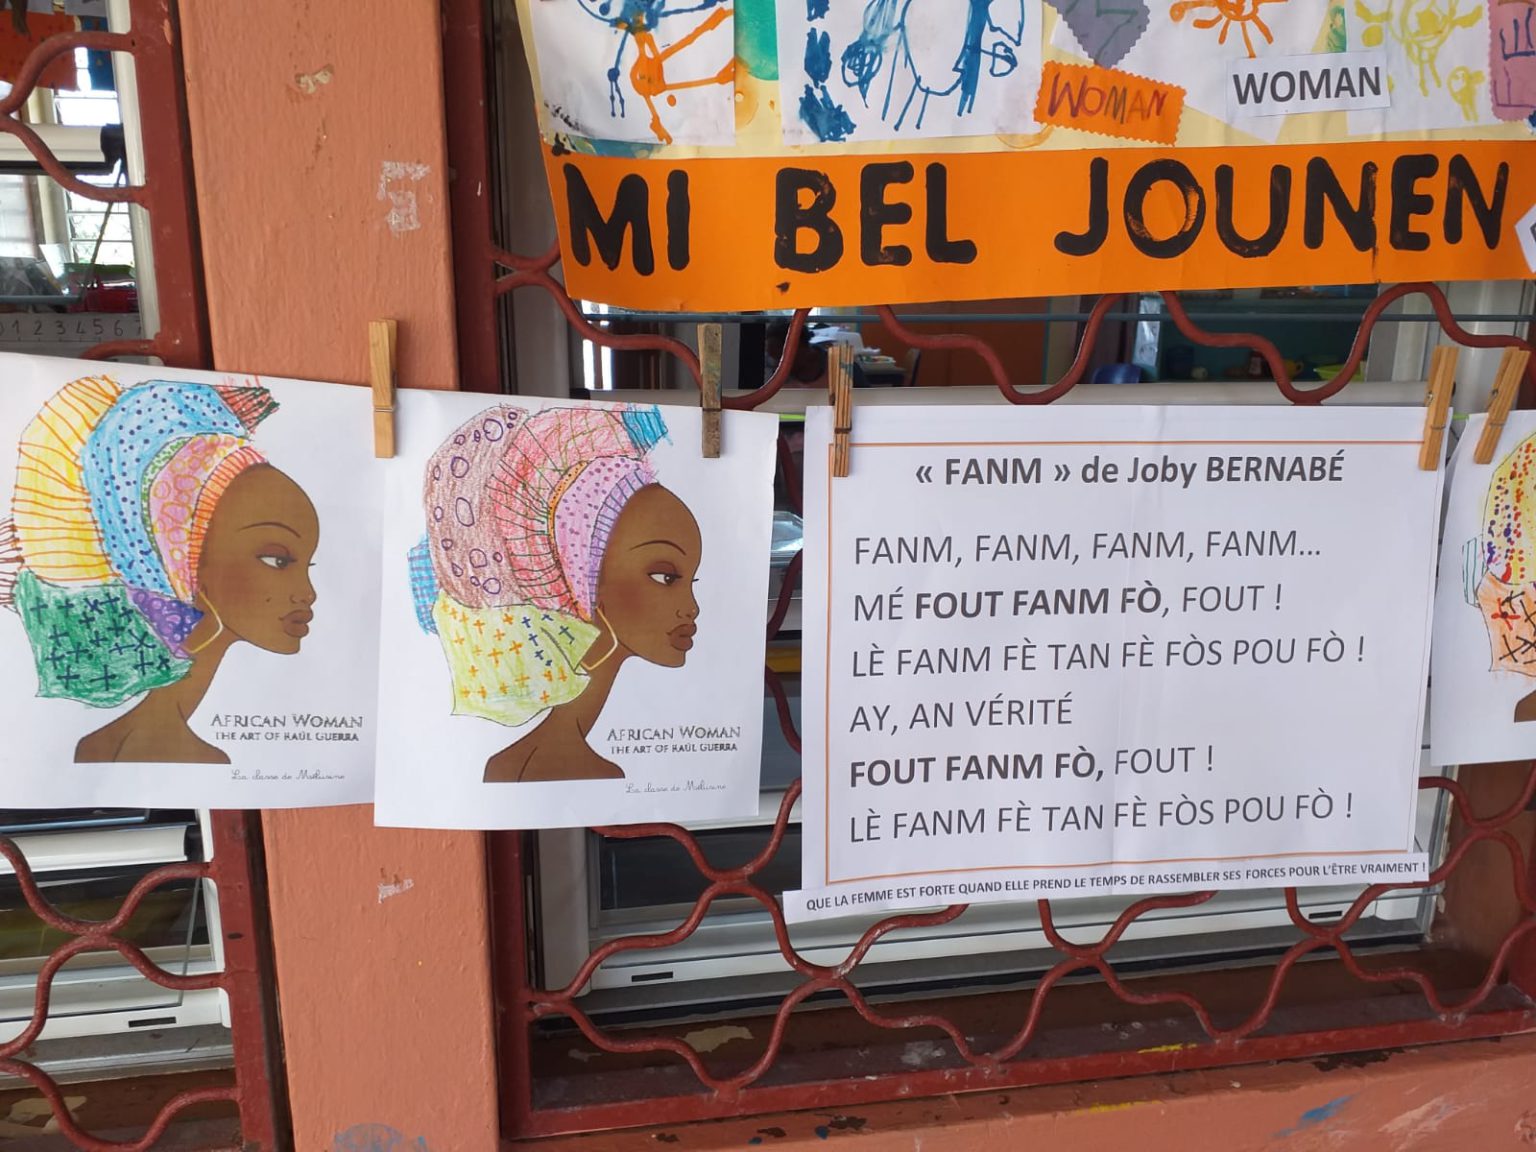 WOMAN
WOMAN
MI BEL JOUNEN
0 1 2 3 4 5 6 7
« FANM » de Joby BERNABÉ
FANM, FANM, FANM, FANM...
MÉ FOUT FANM FÒ, FOUT !
LÈ FANM FÈ TAN FÈ FÒS POU FÒ !
AY, AN VÉRITÉ
FOUT FANM FÒ, FOUT !
LÈ FANM FÈ TAN FÈ FÒS POU FÒ !
QUE LA FEMME EST FORTE QUAND ELLE PREND LE TEMPS DE RASSEMBLER SES FORCES POUR L'ÊTRE VRAIMENT !
AFRICAN WOMAN
THE ART OF RAÚL GUERRA
La classe de Mélusine
AFRICAN WOMAN
THE ART OF RAÚL GUERRA
La classe de Mélusine